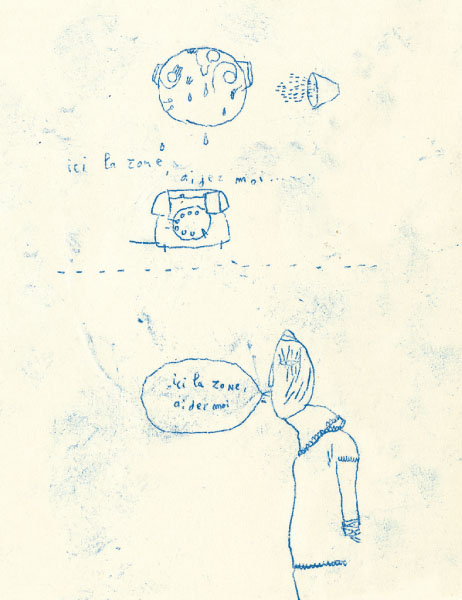 ici la zone,
aidez moi...
ici la zone,
aidez moi